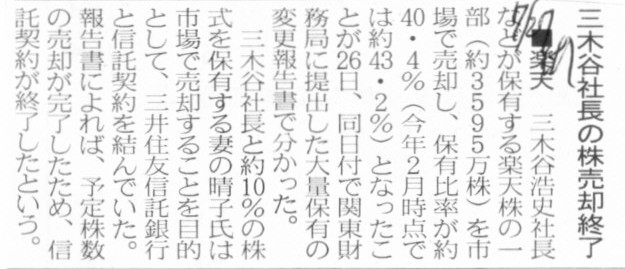 三木谷社長の株売却終了
7/27
■楽天　三木谷浩史社長
などが保有する楽天株の一
部（約3595万株）を市
場で売却し、保有比率が約
40・4％（今年2月時点で
は約43・2％）となったこ
とが26日、同日付で関東財
務局に提出した大量保有の
変更報告書で分かった。
　三木谷社長と約10％の株
式を保有する妻の晴子氏は
市場で売却することを目的
として、三井住友信託銀行
と信託契約を結んでいた。
報告書によれば、予定株数
の売却が完了したため、信
託契約が終了したという。